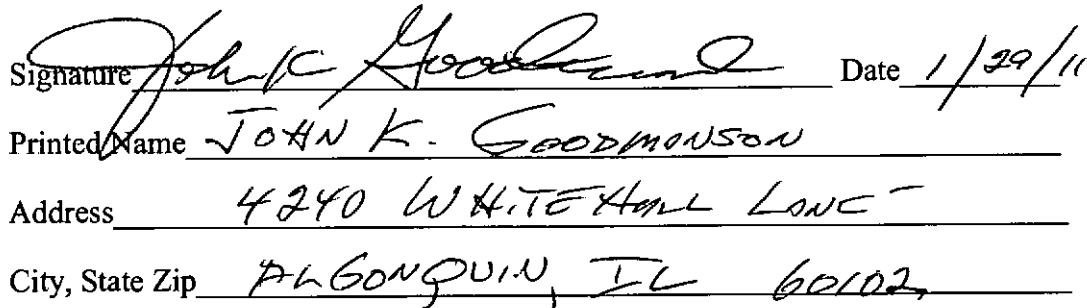 Signature John K Goodmonson Date 1/29/11
Printed Name JOHN K. GOODMONSON
Address 4240 WHITEHALL LANE
City, State Zip ALGONQUIN, IL 60102